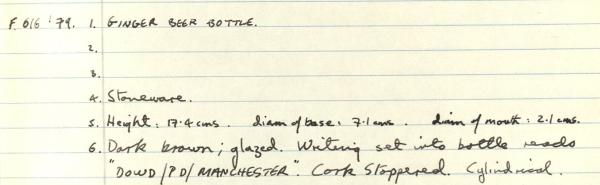 F. 616 '79. 1. GINGER BEER BOTTLE.
2.
3.
4. Stoneware.
5. Height: 17.4 cms. diam of base: 7.1 cms. diam of mouth: 2.1 cms.
6. Dark brown; glazed. Writing set into bottle reads
"DOWD/PD/MANCHESTER". Cork Stoppered. Cylindrical.